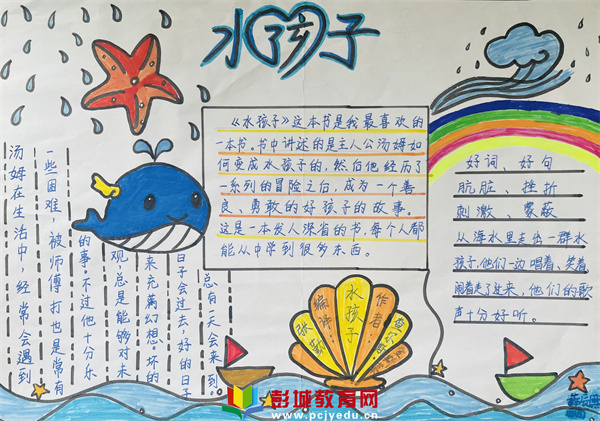 水孩子
《水孩子》这本书是我最喜欢的
一本书。书中讲述的是主人公汤姆如
何变成水孩子的，然后他经历了
一系列的冒险之后，成为一个善
良、勇敢的好孩子的故事。
这是一本发人深省的书，每个人都
能从中学到很多东西。
好词、好句
肮脏、挫折
刺激、蒙蔽
从海水里走出一群水
孩子，他们一边唱着、笑着、
闹着走了过来，他们的歌
声十分好听。
汤姆在生活中，经常会遇到
一些困难，被师傅打也是常有
的事。不过他十分乐
观，总是能够对未
来充满幻想。坏的
日子会过去，好的日子
总有一天会来到
编译
水孩子
作者：
彭城教育网
www.pcjyedu.cn